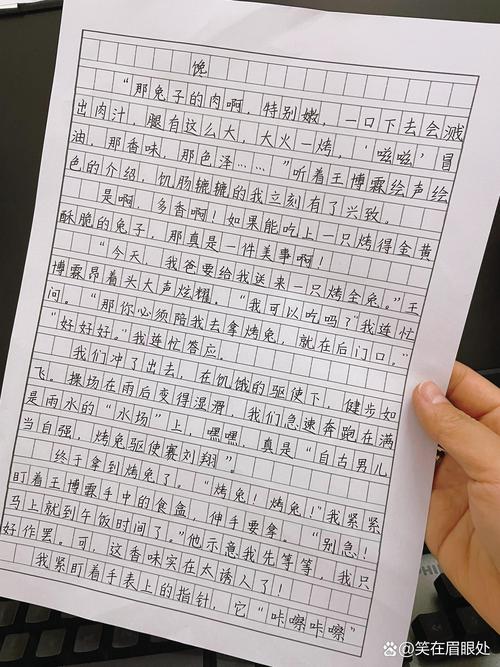 馋
“那兔子的肉啊，特别嫩，一口下去会溅
出肉汁，腿有这么大，大火一烤，‘嗞嗞’冒
油，那香味，那色泽……”听着王博霖绘声绘
色的介绍，饥肠辘辘的我立刻有了兴致。
是啊，多香啊！如果能吃上一只烤得金黄
酥脆的兔子，那真是一件美事啊！
“今天，我爸要给我送来一只烤全兔。”王
博霖昂着头大声炫耀。“我可以吃吗？”我连忙
问。“那你必须陪我去拿烤兔，就在后门口。”
“好好好。”我连忙答应。
我们冲了出去，在饥饿的驱使下，健步如
飞。操场在雨后变得湿滑，我们急速奔跑在满
是雨水的“水场”上，嘿嘿，真是“自古男儿
当自强，烤兔驱使赛刘翔”。
终于拿到烤兔了。“烤兔！烤兔！”我紧紧
盯着王博霖手中的食盒，伸手要拿。“别急！
马上就到午饭时间了。”他示意我先等等，我只
好作罢。可，这香味实在太诱人了！
我紧盯着手表上的指针，它“咔嚓咔嚓”
PHI
百家号/笑在眉眼处